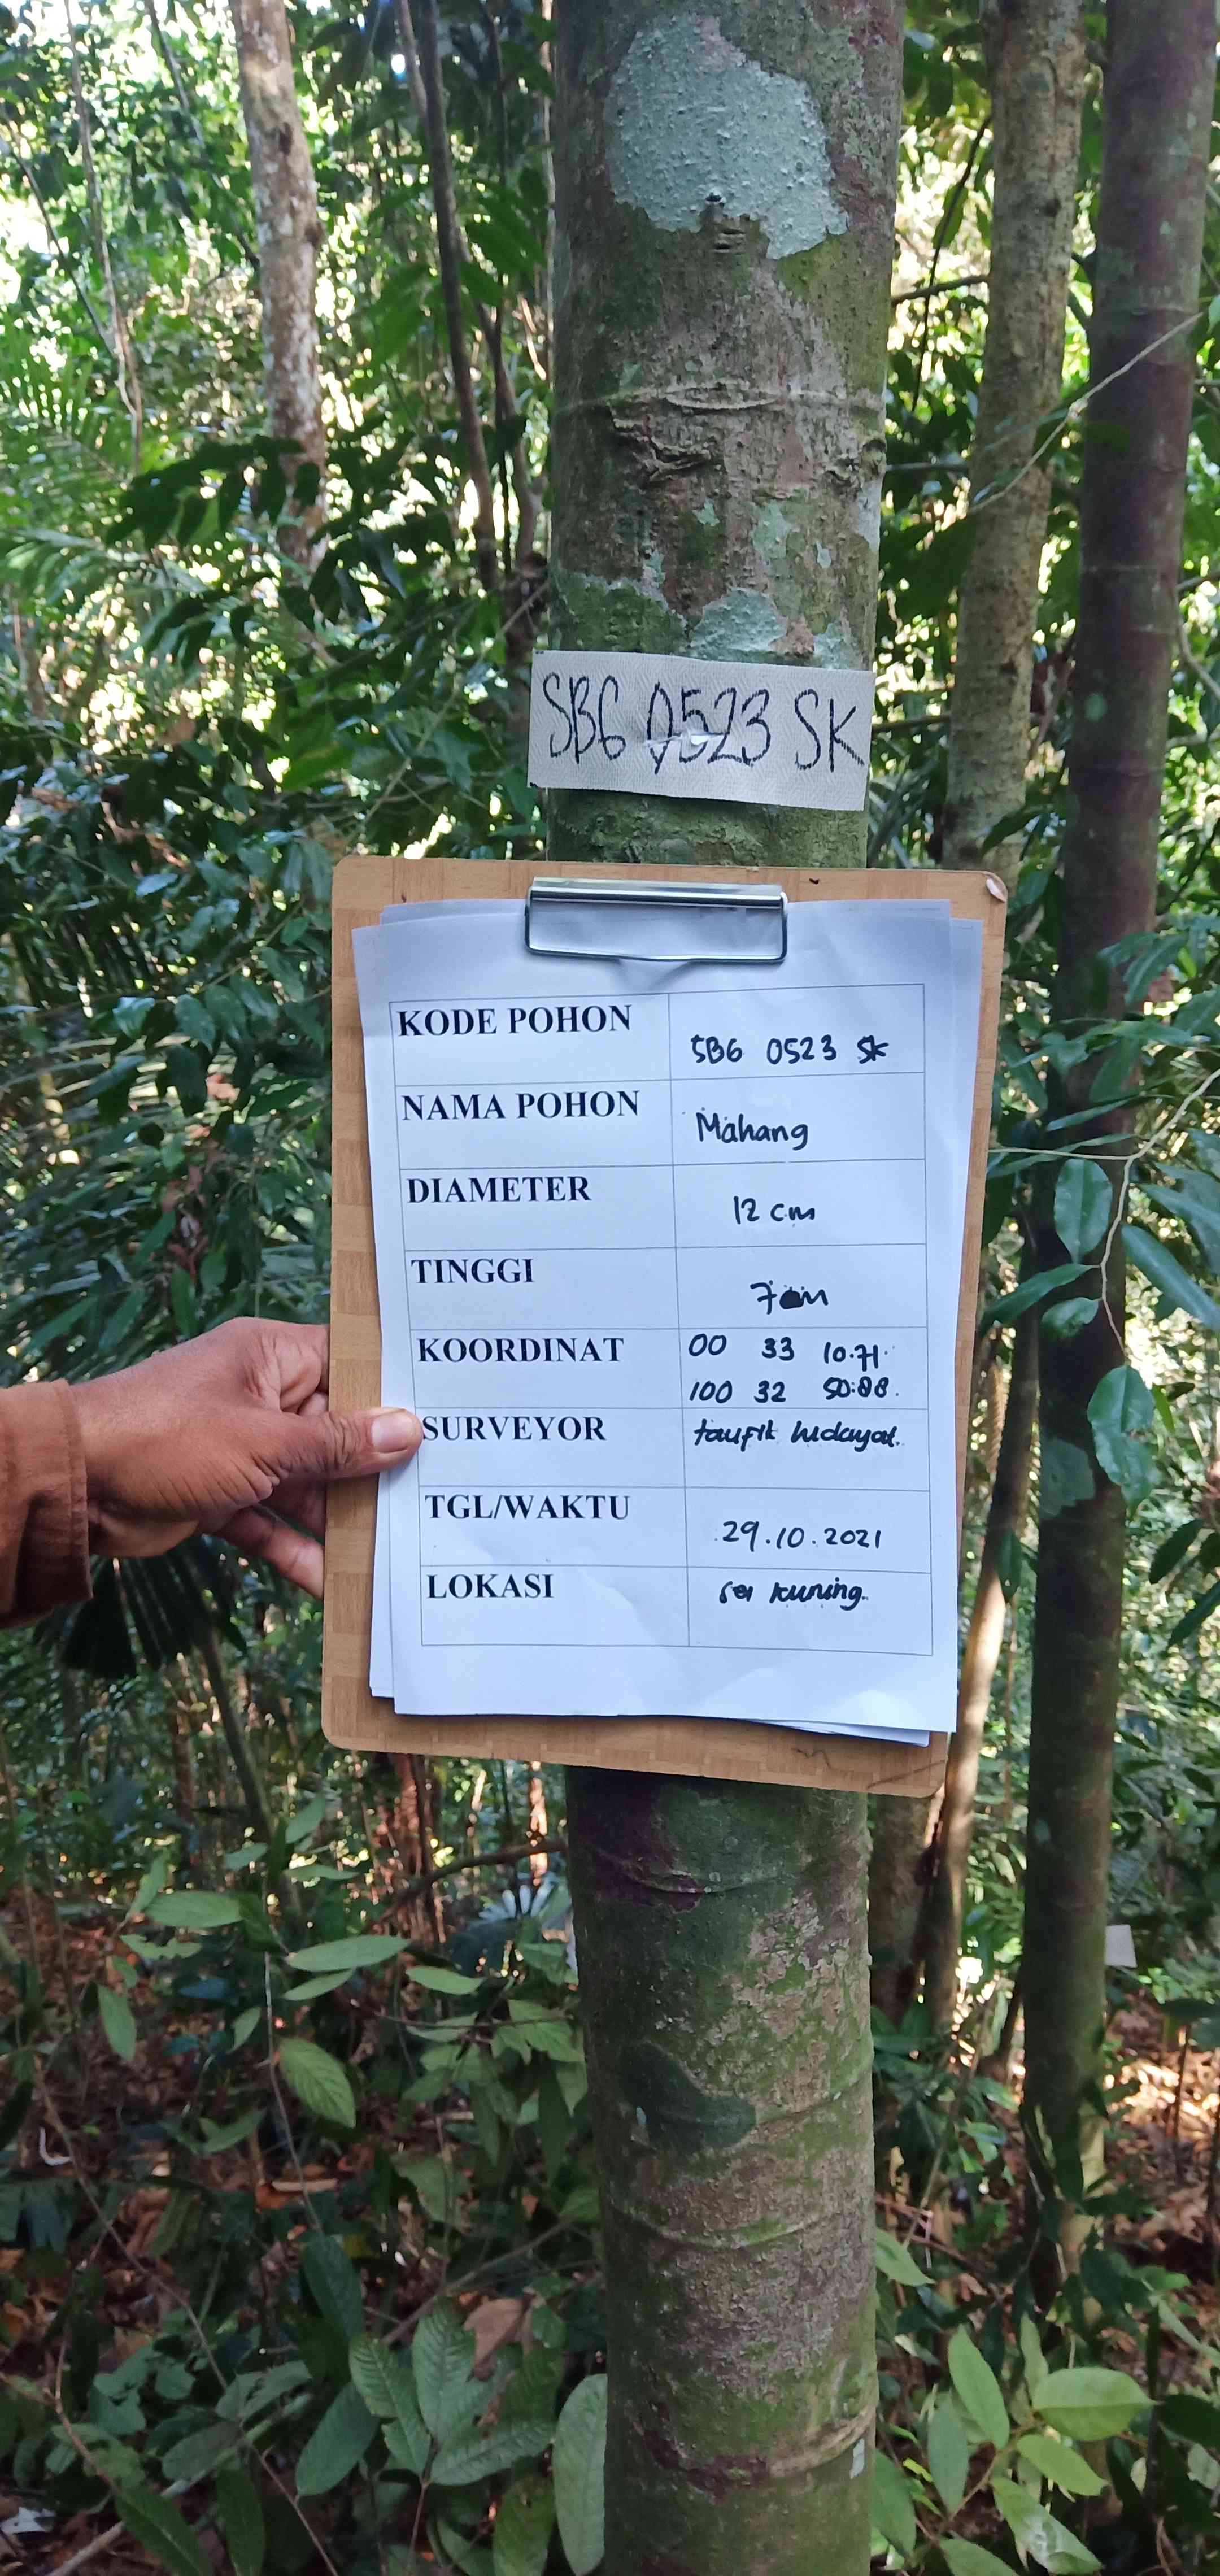 SBG 0523 SK
KODE POHON SBG 0523 SK
NAMA POHON Mahang
DIAMETER 12 cm
TINGGI 7 m
KOORDINAT 00 33 10.71
100 32 50.88
SURVEYOR taufik hidayat.
TGL/WAKTU 29.10.2021
LOKASI sei kuning